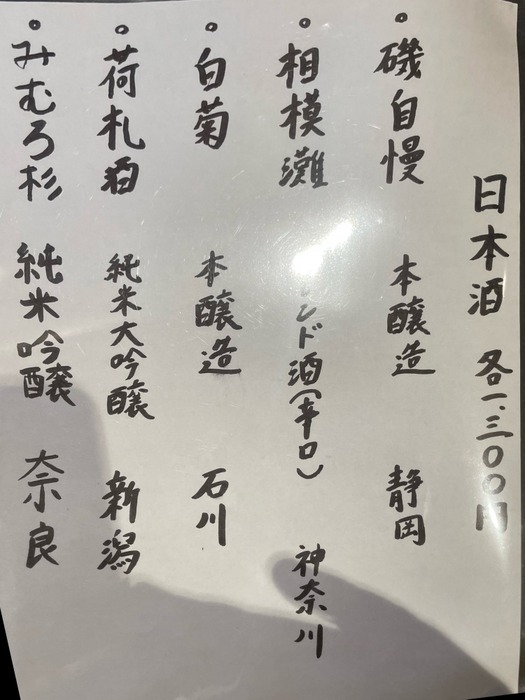 日本酒 各一、三〇〇円
。磯自慢 本醸造 静岡
。相模灘 ンド酒(辛口) 神奈川
。白菊 本醸造 石川
。荷札酒 純米大吟醸 新潟
。みむろ杉 純米吟醸 奈良